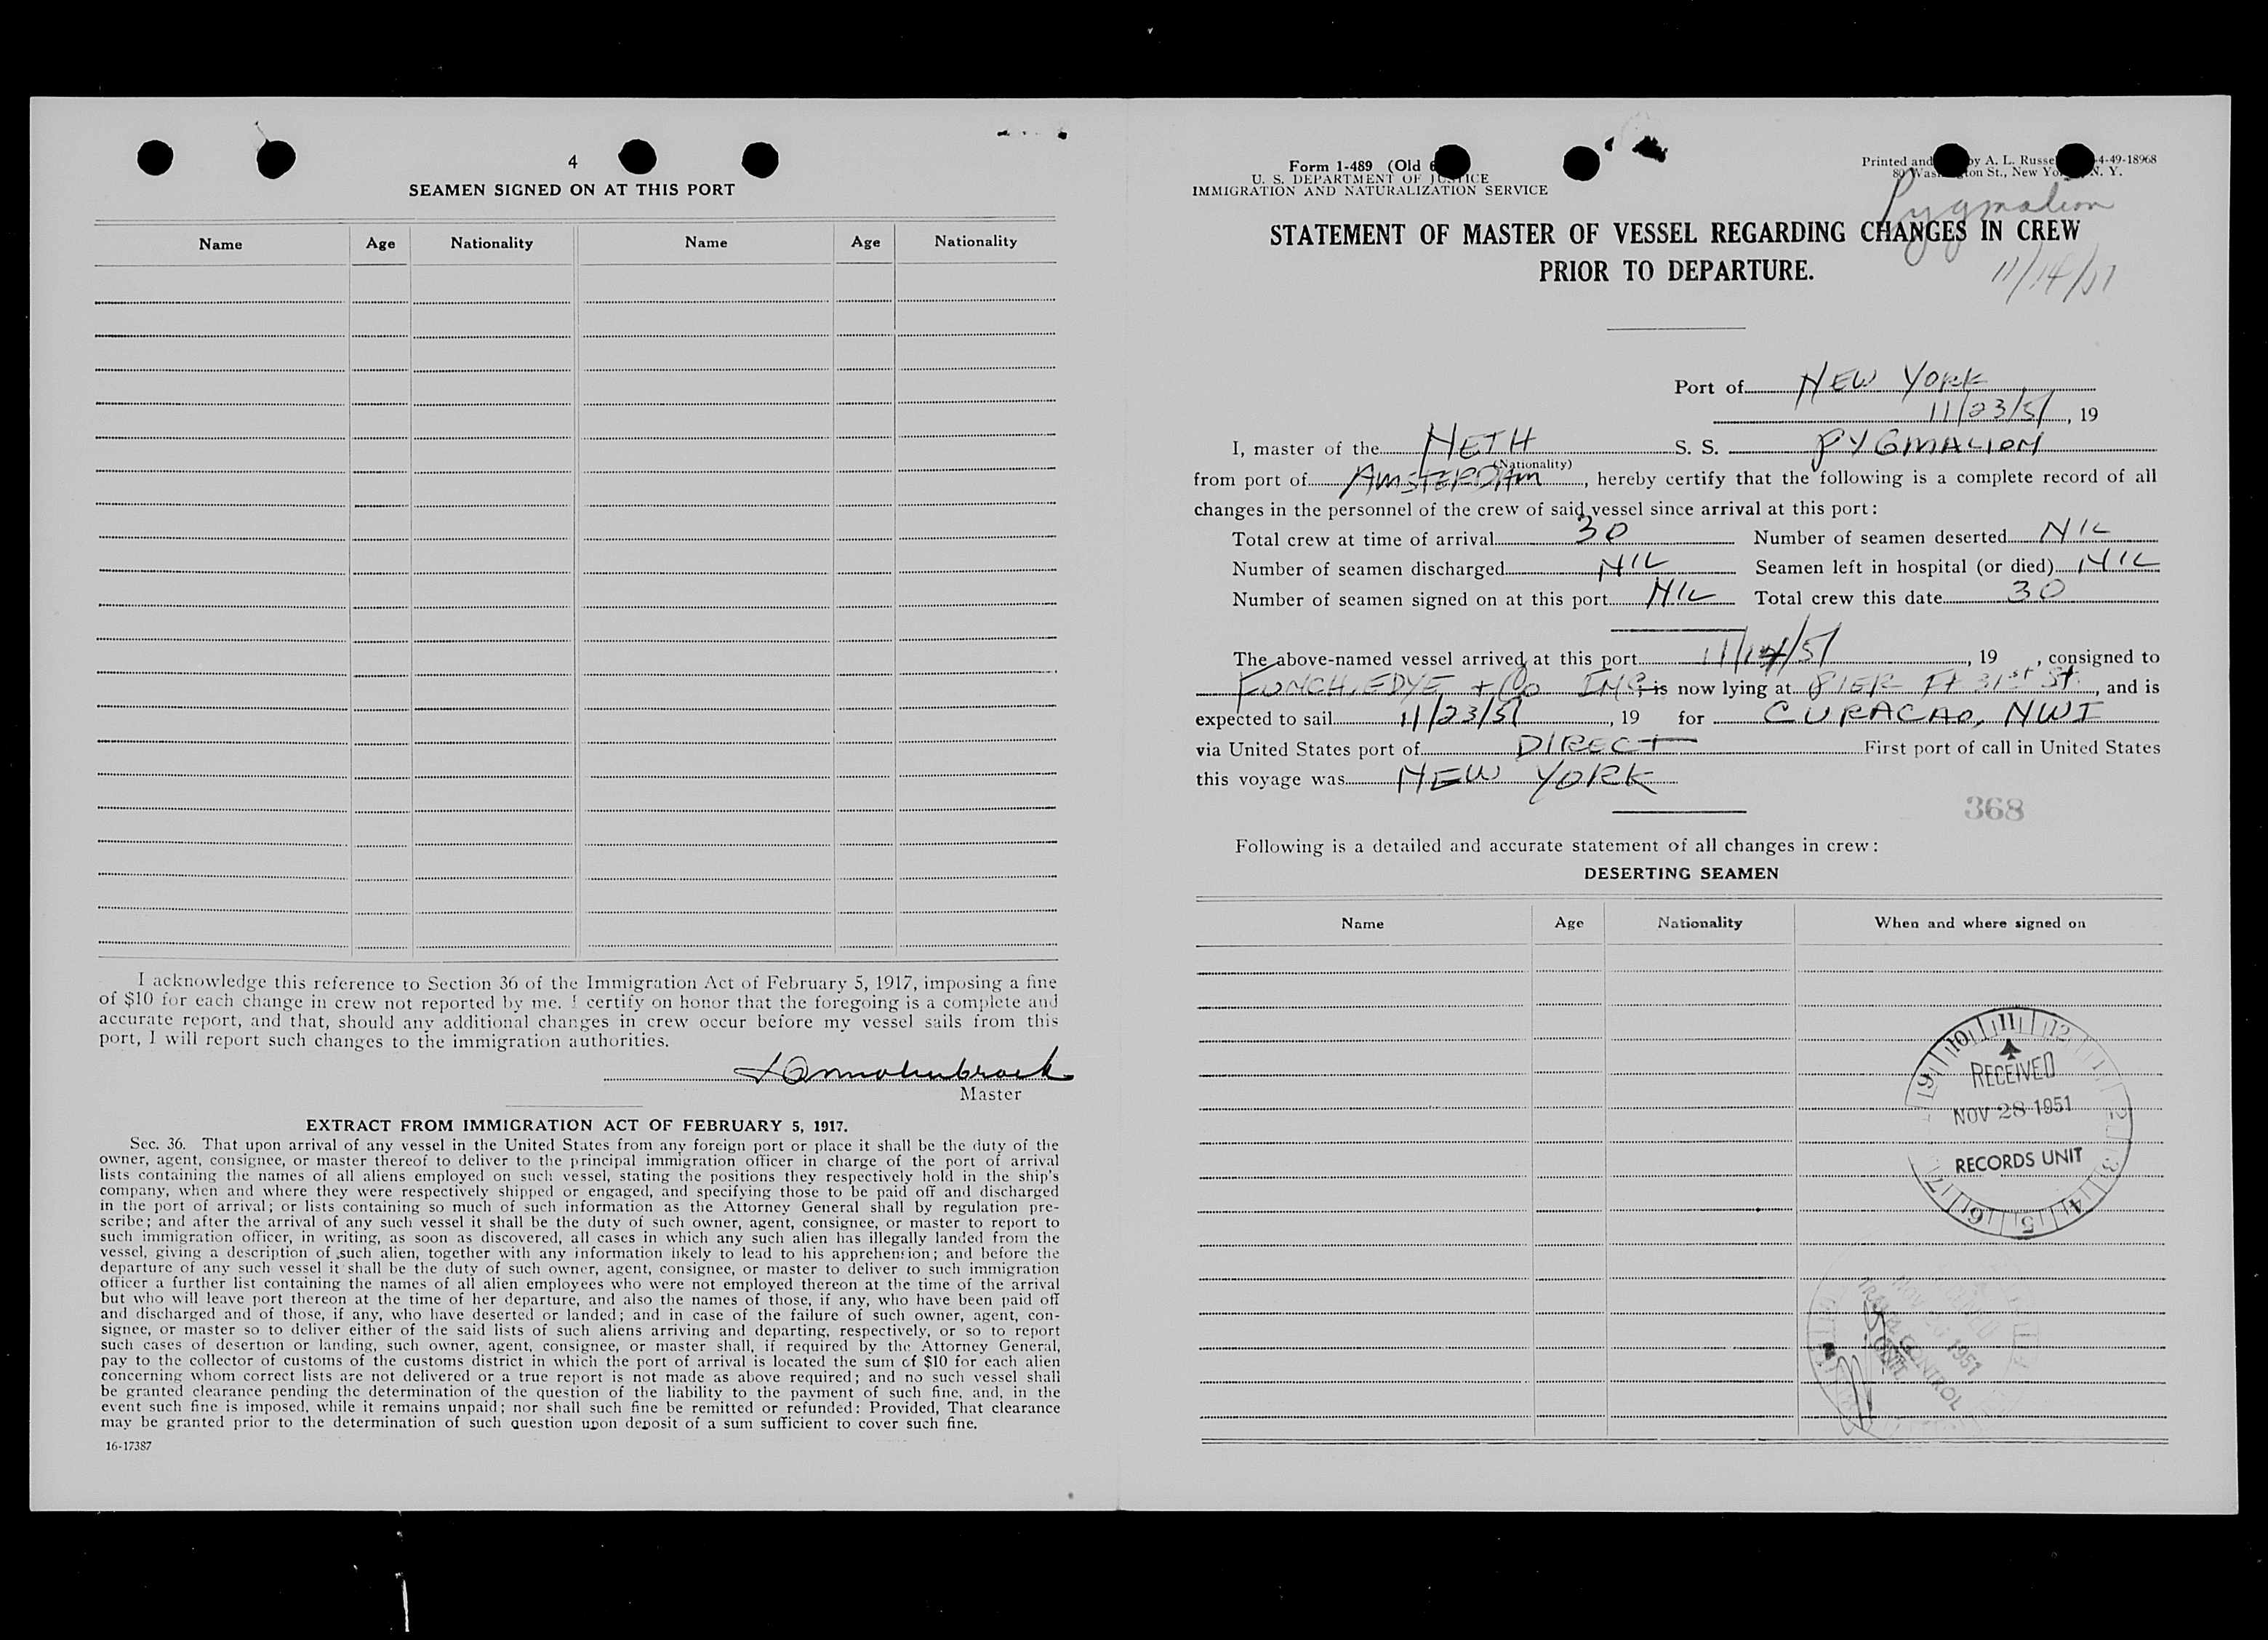 4
SEAMEN SIGNED ON AT THIS PORT
Name Age Nationality Name Age Nationality
I acknowledge this reference to Section 36 of the Immigration Act of February 5, 1917, imposing a fine
of $10 for each change in crew not reported by me. I certify on honor that the foregoing is a complete and
accurate report, and that, should any additional changes in crew occur before my vessel sails from this
port, I will report such changes to the immigration authorities.
Master
EXTRACT FROM IMMIGRATION ACT OF FEBRUARY 5, 1917.
Sec. 36. That upon arrival of any vessel in the United States from any foreign port or place it shall be the duty of the
owner, agent, consignee, or master thereof to deliver to the principal immigration officer in charge of the port of arrival
lists containing the names of all aliens employed on such vessel, stating the positions they respectively hold in the ship's
company, when and where they were respectively shipped or engaged, and specifying those to be paid off and discharged
in the port of arrival; or lists containing so much of such information as the Attorney General shall by regulation pre-
scribe; and after the arrival of any such vessel it shall be the duty of such owner, agent, consignee, or master to report to
such immigration officer, in writing, as soon as discovered, all cases in which any such alien has illegally landed from the
vessel, giving a description of such alien, together with any information likely to lead to his apprehension; and before the
departure of any such vessel it shall be the duty of such owner, agent, consignee, or master to deliver to such immigration
officer a further list containing the names of all alien employees who were not employed thereon at the time of the arrival
but who will leave port thereon at the time of her departure, and also the names of those, if any, who have been paid off
and discharged and of those, if any, who have deserted or landed; and in case of the failure of such owner, agent, con-
signee, or master so to deliver either of the said lists of such aliens arriving and departing, respectively, or so to report
such cases of desertion or landing, such owner, agent, consignee, or master shall, if required by the Attorney General,
pay to the collector of customs of the customs district in which the port of arrival is located the sum of $10 for each alien
concerning whom correct lists are not delivered or a true report is not made as above required; and no such vessel shall
be granted clearance pending the determination of the question of the liability to the payment of such fine, and, in the
event such fine is imposed, while it remains unpaid; nor shall such fine be remitted or refunded: Provided, That clearance
may be granted prior to the determination of such question upon deposit of a sum sufficient to cover such fine.
16-17387
Form 1-489 (Old
U. S. DEPARTMENT OF JUSTICE
IMMIGRATION AND NATURALIZATION SERVICE
Printed and by A. L. Russe 4-49-18968
80 Washington St., New York, N. Y.
Pygmalion
11/14/51
STATEMENT OF MASTER OF VESSEL REGARDING CHANGES IN CREW
PRIOR TO DEPARTURE.
Port of NEW YORK
11/23/51, 19
I, master of the NETH S. S. PYGMALION
(Nationality)
from port of AMSTERDAM, hereby certify that the following is a complete record of all
changes in the personnel of the crew of said vessel since arrival at this port:
Total crew at time of arrival 30 Number of seamen deserted NIL
Number of seamen discharged NIL Seamen left in hospital (or died) NIL
Number of seamen signed on at this port NIL Total crew this date 30
The above-named vessel arrived at this port 11/14/51, 19 , consigned to
FUNCH, EDYE + Co INC, is now lying at PIER Ft 31st St, and is
expected to sail 11/23/51, 19 for CURACAO, NWI
via United States port of DIRECT First port of call in United States
this voyage was NEW YORK
368
Following is a detailed and accurate statement of all changes in crew:
DESERTING SEAMEN
Name Age Nationality When and where signed on
9 10 11 12 1 2 3 4 5 6 7
RECEIVED
NOV 28 1951
RECORDS UNIT
NOV 26 1951
CONTROL
UNIT